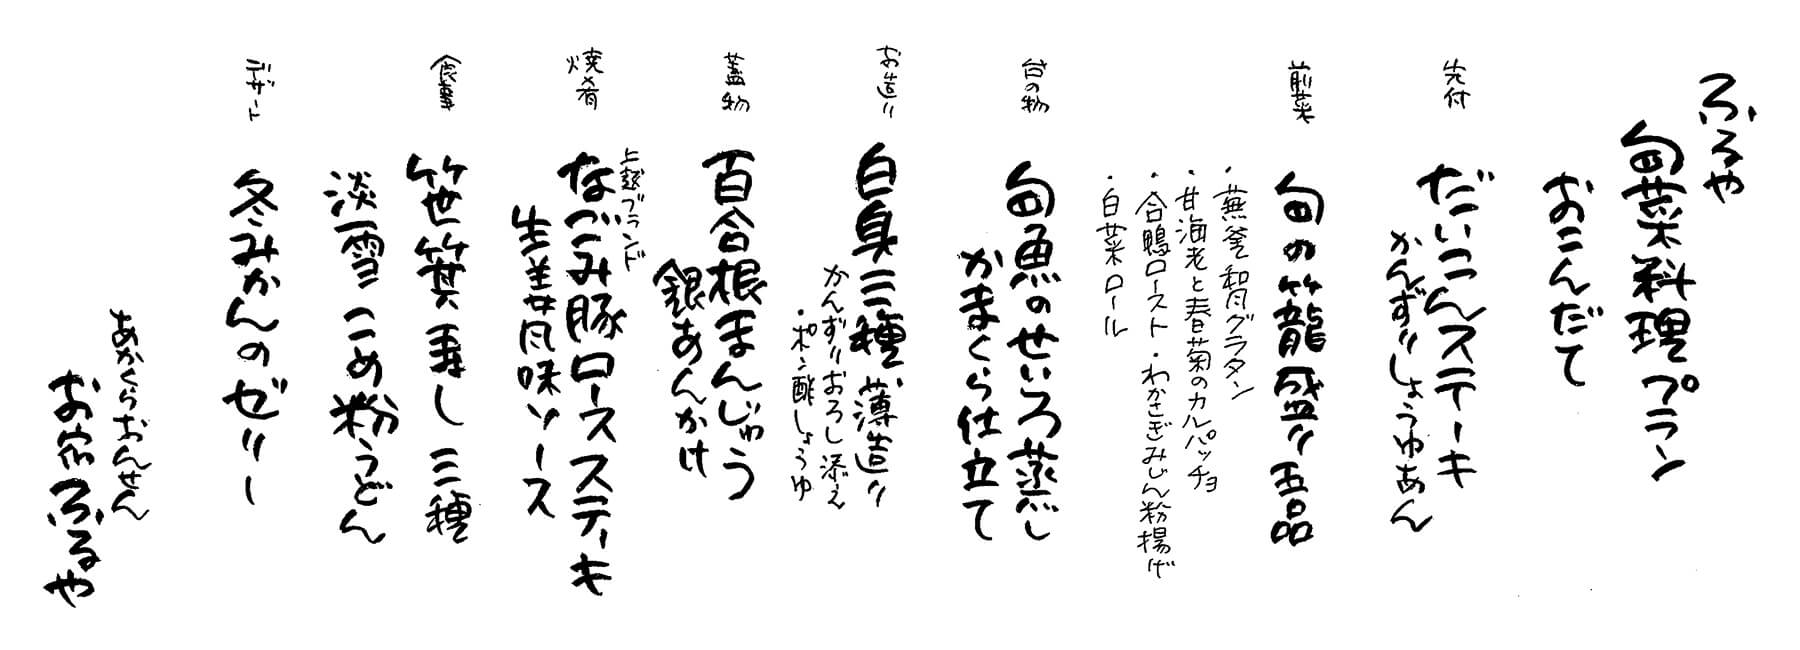 ふるや
旬菜料理プラン
おこんだて
先付
だいこんステーキ
かんずりしょうゆあん
前菜
旬の竹籠盛り五品
・蕪釜和風グラタン
・甘海老と春菊のカルパッチョ
・合鴨ロースト・わかさぎみじん粉揚げ
・白菜ロール
台の物
旬魚のせいろ蒸し
かまくら仕立て
お造り
白身三種薄造り
かんずりおろし添え
・ポン酢しょうゆ
蓋物
百合根まんじゅう
銀あんかけ
焼肴
上越ブランド
なごみ豚ロースステーキ
生姜風味ソース
食事
笹箕寿し三種
淡雪こめ粉うどん
デザート
冬みかんのゼリー
あかくらおんせん
お宿ふるや